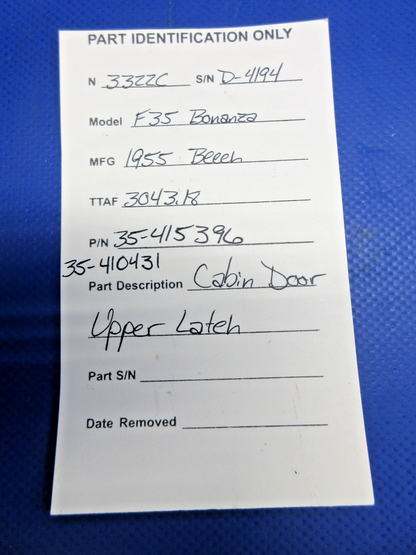 PART IDENTIFICATION ONLY
N 3322C S/N D-4194
Model F35 Bonanza
MFG 1955 Beech
TTAF 3043.18
P/N 35-415396
35-410431
Part Description Cabin Door
Upper Latch
Part S/N
Date Removed